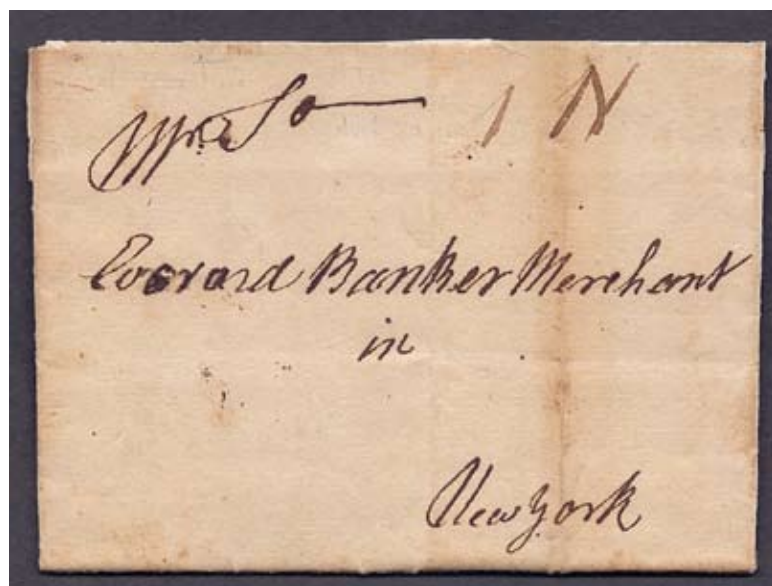 Mr. To 1 N
Everard Banker Merchant
in
New York